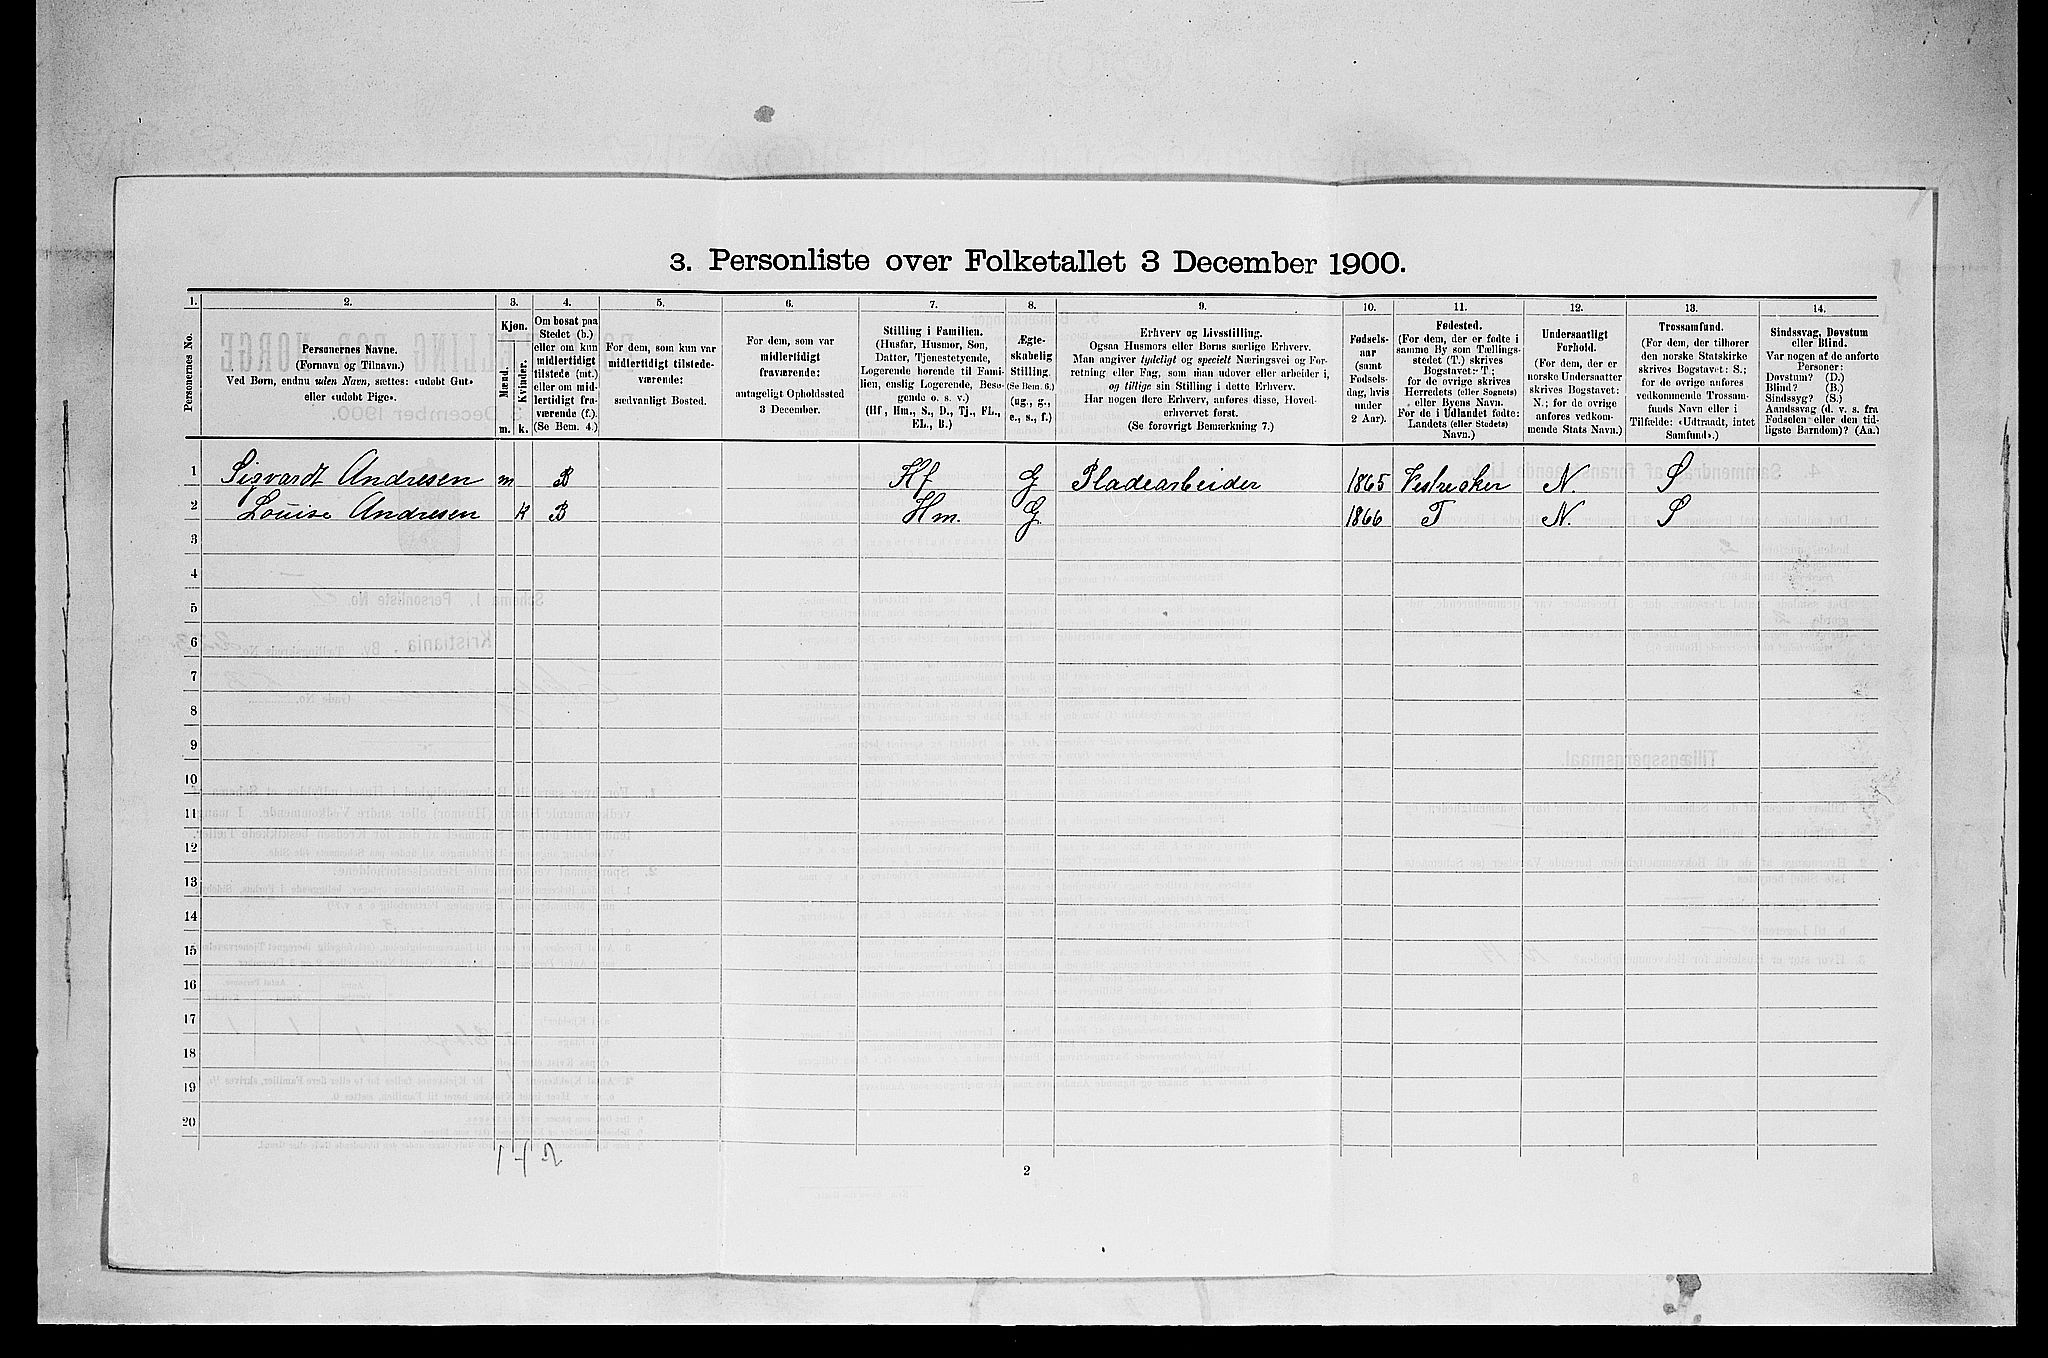 3. Personliste over Folketallet 3 December 1900.
1. 2. 3. 4. 5. 6. 7. 8. 9. 10. 11. 12. 13. 14.
Personernes No.
Personernes Navne.
(Fornavn og Tilnavn.)
Ved Børn, endnu uden Navn, sættes: «udøbt Gut»
eller «udøbt Pige».
Kjøn.
Mænd.
Kvinder.
m. k.
Om bosat paa
Stedet (b.)
eller om kun
midlertidigt
tilstede (mt.)
eller om mid-
lertidigt fra-
værende (f.).
(Se Bem. 4.)
For dem, som kun var
midlertidigt tilstede-
værende:
sædvanligt Bosted.
For dem, som var
midlertidigt
fraværende:
antageligt Opholdssted
3 December.
Stilling i Familien.
(Husfar, Husmor, Søn,
Datter, Tjenestetyende,
Logerende hørende til Fami-
lien, enslig Logerende, Besø-
gende o. s. v.)
(Hf., Hm., S., D., Tj., FL.,
EL., B.)
Ægte-
skabelig
Stilling.
(Se Bem. 6.)
(ug., g.,
e., s., f.)
Erhverv og Livsstilling.
Ogsaa Husmors eller Børns særlige Erhverv.
Man angiver tydeligt og specielt Næringsvei og For-
retning eller Fag, som man udøver eller arbeider i,
og tillige sin Stilling i dette Erhverv.
Har nogen flere Erhverv, anføres disse, Hoved-
erhvervet først.
(Se forøvrigt Bemærkning 7.)
Fødsels-
aar
(samt
Fødsels-
dag, hvis
under
2 Aar).
Fødested.
(For dem, der er fødte i
samme By som Tællings-
stedet (T.) skrives
Bogstavet: T;
for de øvrige skrives
Herredets (eller Sognets)
eller Byens Navn.
For de i Udlandet fødte:
Landets (eller Stedets)
Navn.)
Undersaatligt
Forhold.
(For dem, der er
norske Undersaatter
skrives Bogstavet:
N.; for de øvrige
anføres vedkom-
mende Stats Navn.)
Trossamfund.
(For dem, der tilhører
den norske Statskirke
skrives Bogstavet: S.;
for de øvrige anføres
vedkommende Trossam-
funds Navn eller i
Tilfælde: «Udtraadt, intet
Samfund».)
Sindssvag, Døvstum
eller Blind.
Var nogen af de anførte
Personer:
Døvstum? (D.)
Blind? (B.)
Sindssyg? (S.)
Aandssvag (d. v. s. fra
Fødselen eller den tid-
ligste Barndom)? (Aa.)
1 Sigvardt Andresen m B Hf G Pladearbeider 1865 Vestre Aker N. S
2 Louise Andresen k B Hm. G 1866 T N. S
3
4
5
6
7
8
9
10
11
12
13
14
15
16
17
18
19
20
2